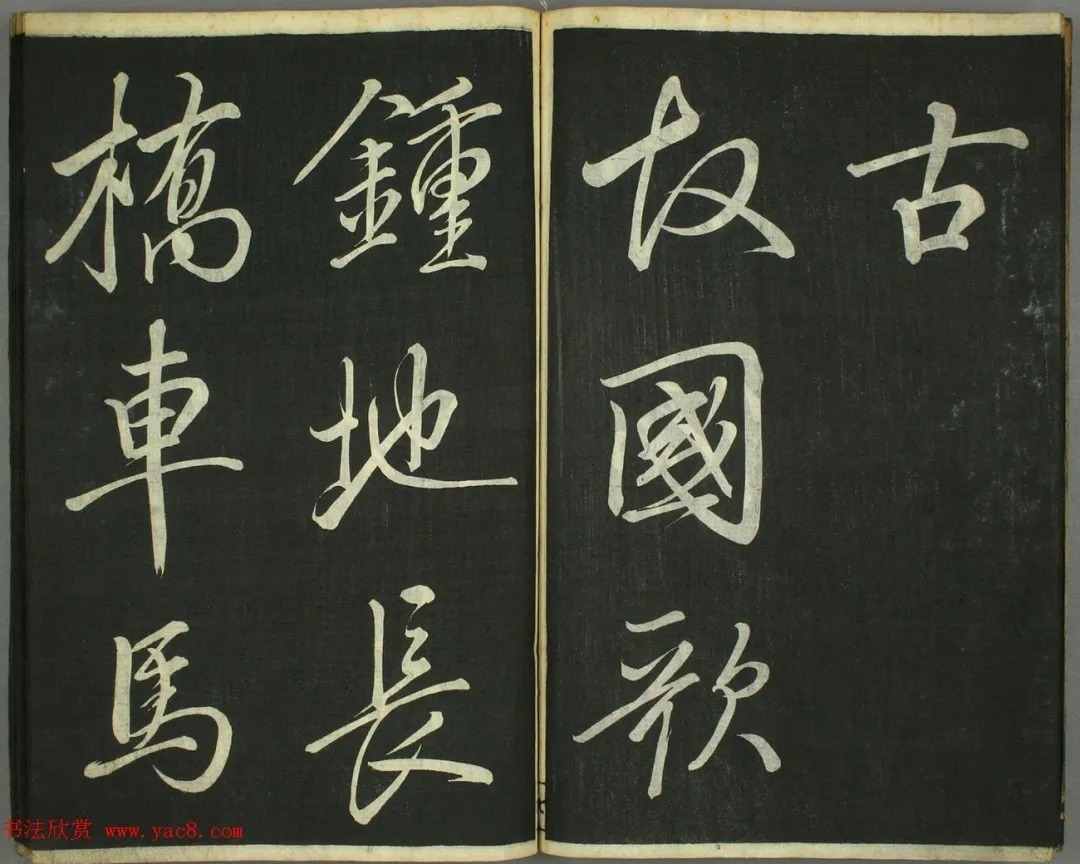 古
故國歌
鍾地長
橋車馬
书法欣赏 www.yac8.com